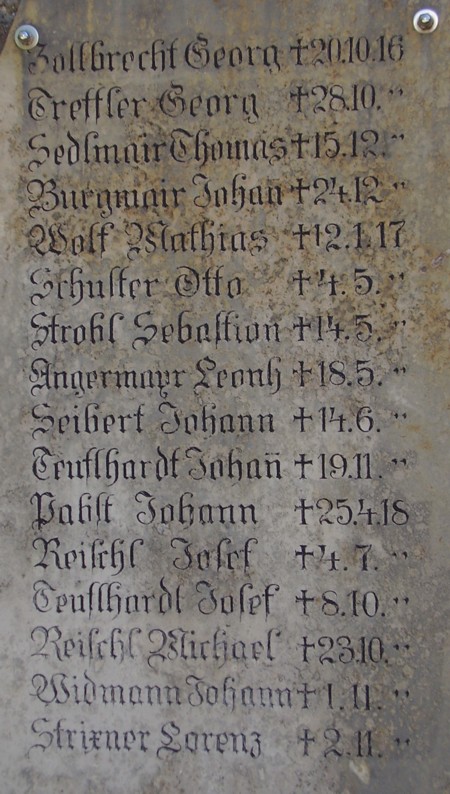 Zollbrecht Georg †20.10.16
Treffler Georg †28.10. "
Sedlmair Thomas †15.12. "
Burgmair Johan †24.12 "
Wolf Mathias †12.1.17
Schuster Otto †4.5. "
Strobl Sebastion †14.5. "
Angermayr Leonh †18.5. "
Seibert Johann †14.6. "
Teuflhardt Johan̄ †19.11. "
Pabst Johann †25.4.18
Reischl Josef †4.7. "
Teuflhardt Josef †8.10. "
Reischl Michael †23.10. "
Widmann Johann †1.11. "
Strixner Lorenz †2.11. "